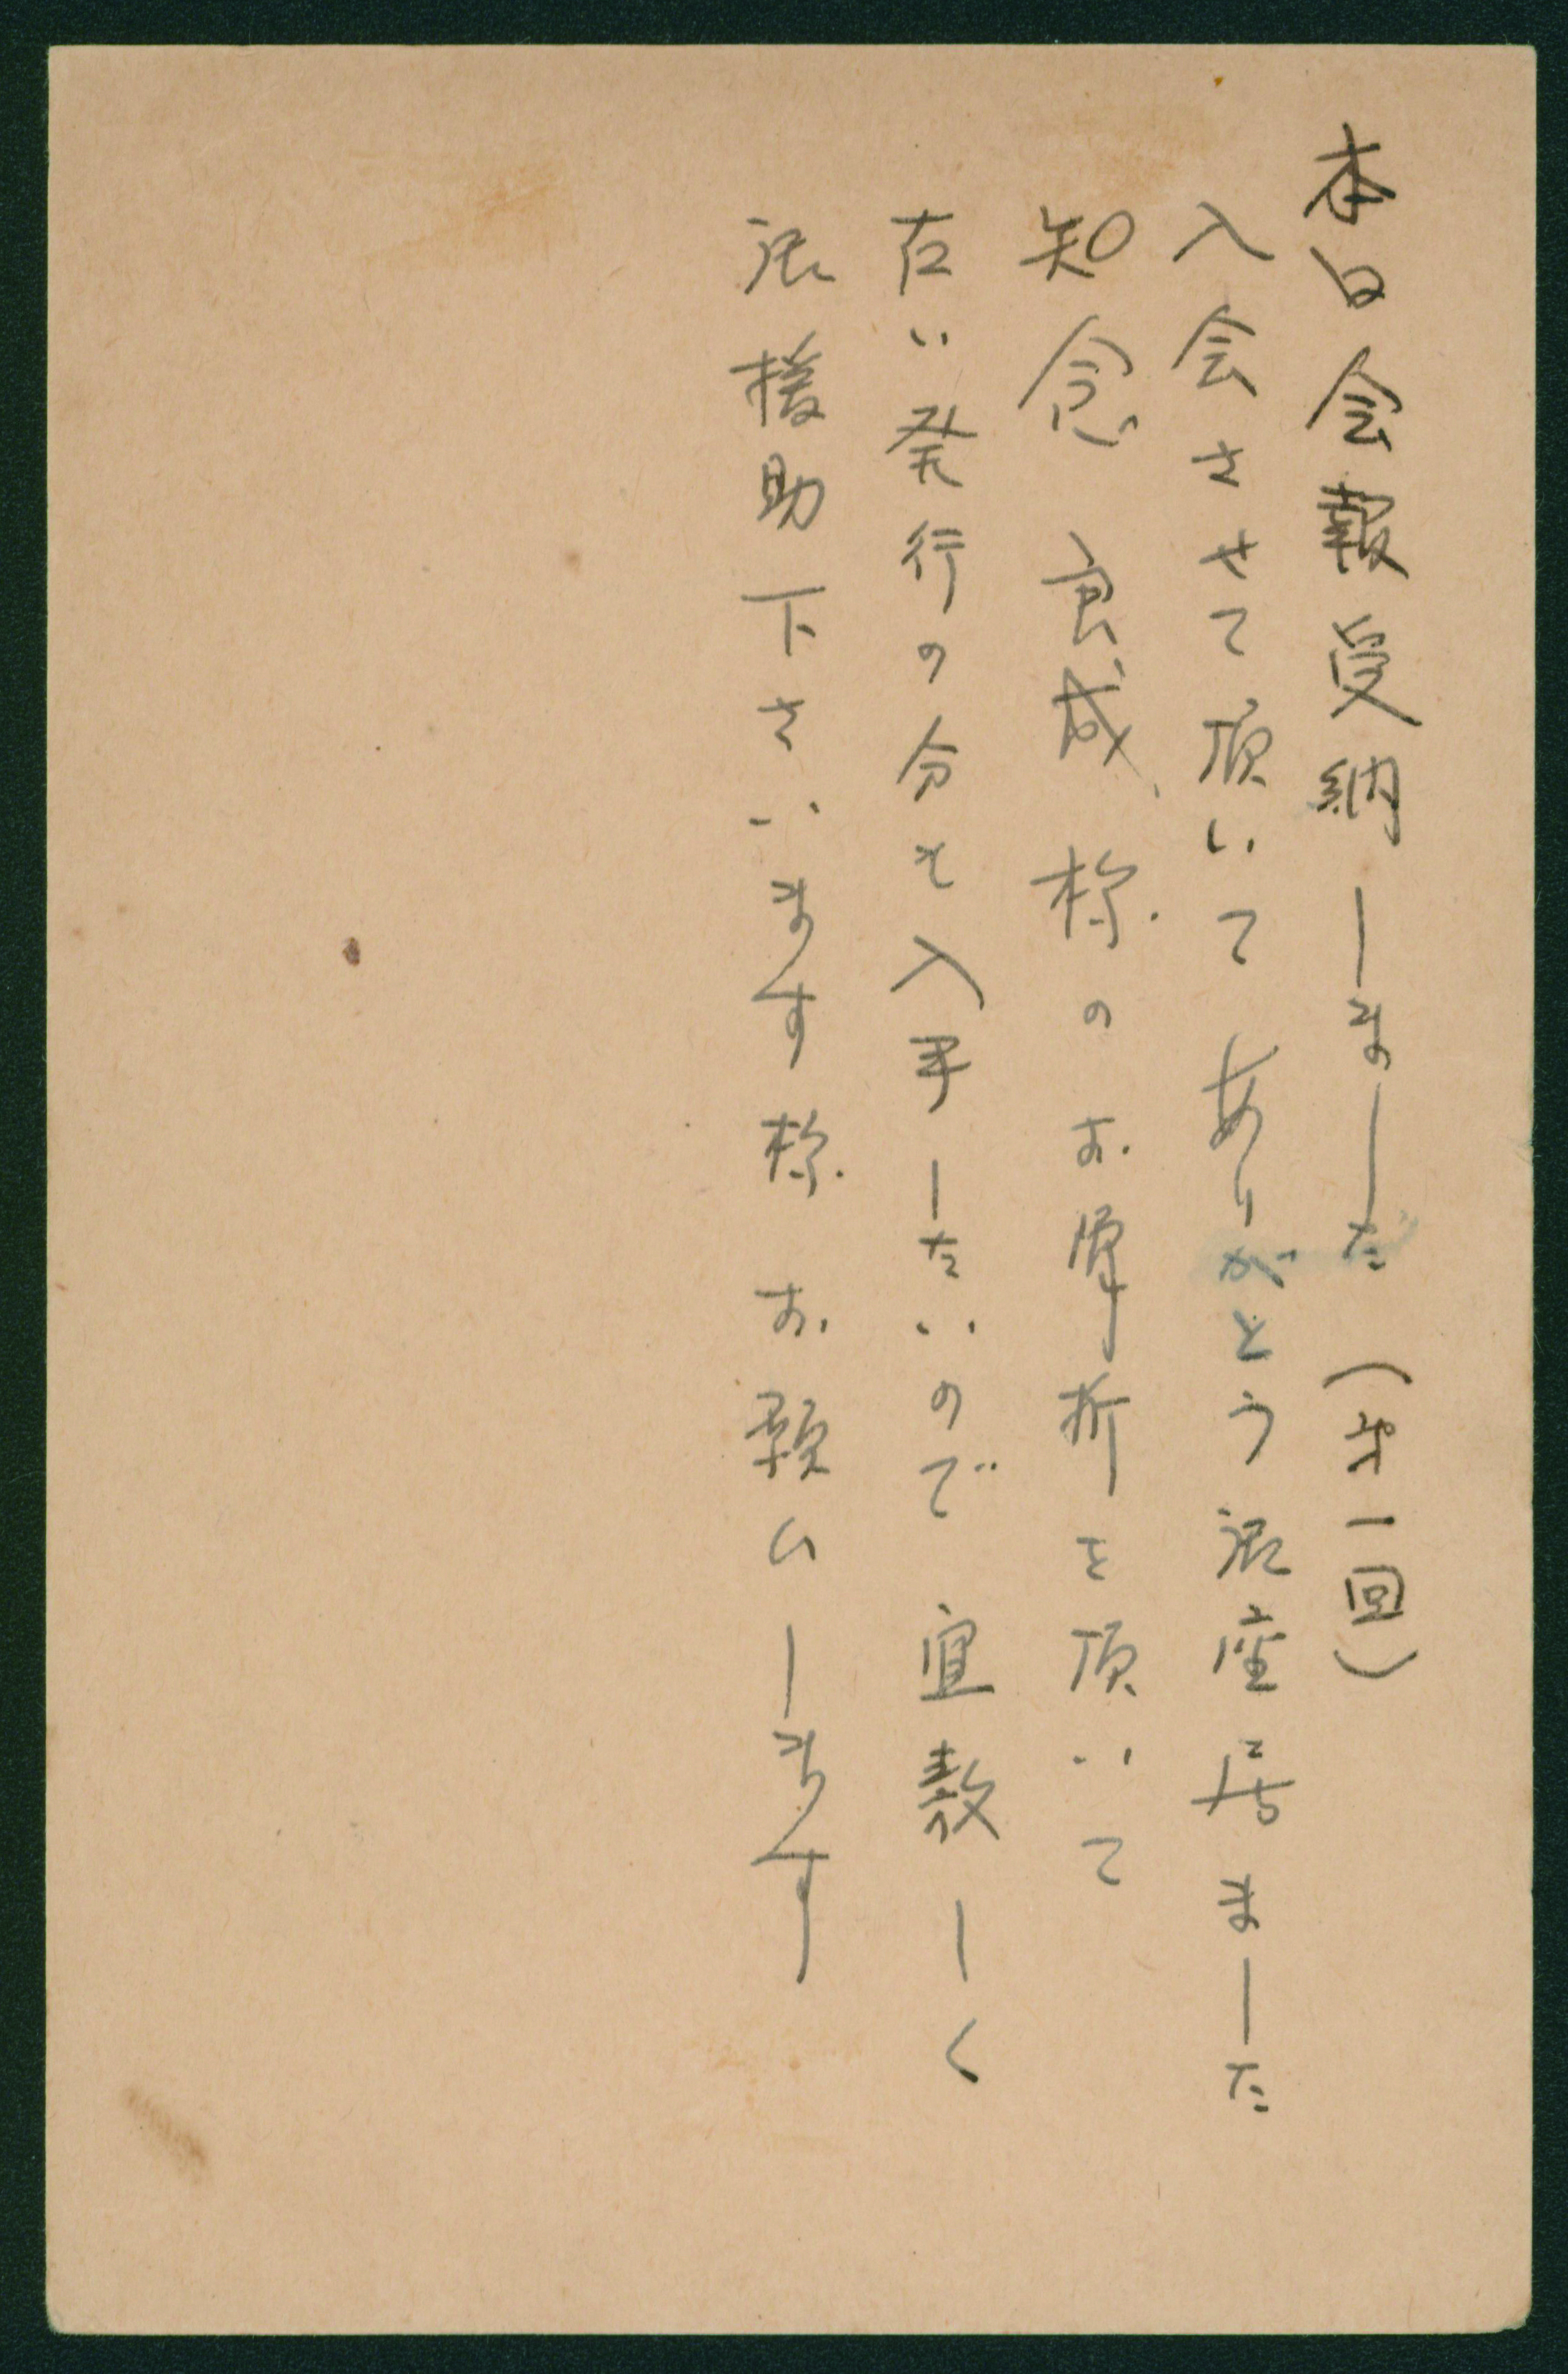 本日会報受納しました(才一回)
入会させて頂いてありがとう御座居ました
知念 良成 様のお骨折を頂いて
古い発行の分も入手したいので 宜敷しく
御援助下さいます様 お願いします